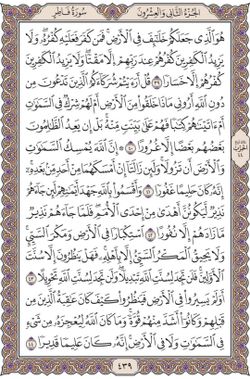 الجزء الثاني والعشرون سورة فاطر
هُوَ ٱلَّذِي جَعَلَكُمۡ خَلَٰٓئِفَ فِي ٱلۡأَرۡضِۚ فَمَن كَفَرَ فَعَلَيۡهِ كُفۡرُهُۥۖ وَلَا
يَزِيدُ ٱلۡكَٰفِرِينَ كُفۡرُهُمۡ عِندَ رَبِّهِمۡ إِلَّا مَقۡتٗاۖ وَلَا يَزِيدُ ٱلۡكَٰفِرِينَ
كُفۡرُهُمۡ إِلَّا خَسَارٗا ٣٩ قُلۡ أَرَءَيۡتُمۡ شُرَكَآءَكُمُ ٱلَّذِينَ تَدۡعُونَ مِن
دُونِ ٱللَّهِ أَرُونِي مَاذَا خَلَقُواْ مِنَ ٱلۡأَرۡضِ أَمۡ لَهُمۡ شِرۡكٞ فِي ٱلسَّمَٰوَٰتِ
أَمۡ ءَاتَيۡنَٰهُمۡ كِتَٰبٗا فَهُمۡ عَلَىٰ بَيِّنَتٖ مِّنۡهُۚ بَلۡ إِن يَعِدُ ٱلظَّٰلِمُونَ
بَعۡضُهُم بَعۡضًا إِلَّا غُرُورًا ٤٠ إِنَّ ٱللَّهَ يُمۡسِكُ ٱلسَّمَٰوَٰتِ
وَٱلۡأَرۡضَ أَن تَزُولَاۚ وَلَئِن زَالَتَآ إِنۡ أَمۡسَكَهُمَا مِنۡ أَحَدٖ مِّنۢ بَعۡدِهِۦٓۚ
إِنَّهُۥ كَانَ حَلِيمًا غَفُورٗا ٤١ وَأَقۡسَمُواْ بِٱللَّهِ جَهۡدَ أَيۡمَٰنِهِمۡ لَئِن جَآءَهُمۡ
نَذِيرٞ لَّيَكُونُنَّ أَهۡدَىٰ مِنۡ إِحۡدَى ٱلۡأُمَمِۖ فَلَمَّا جَآءَهُمۡ نَذِيرٞ
مَّا زَادَهُمۡ إِلَّا نُفُورًا ٤٢ ٱسۡتِكۡبَارٗا فِي ٱلۡأَرۡضِ وَمَكۡرَ ٱلسَّيِّيِٕۚ
وَلَا يَحِيقُ ٱلۡمَكۡرُ ٱلسَّيِّئُ إِلَّا بِأَهۡلِهِۦۚ فَهَلۡ يَنظُرُونَ إِلَّا سُنَّتَ
ٱلۡأَوَّلِينَۚ فَلَن تَجِدَ لِسُنَّتِ ٱللَّهِ تَبۡدِيلٗاۖ وَلَن تَجِدَ لِسُنَّتِ ٱللَّهِ تَحۡوِيلًا ٤٣
أَوَلَمۡ يَسِيرُواْ فِي ٱلۡأَرۡضِ فَيَنظُرُواْ كَيۡفَ كَانَ عَٰقِبَةُ ٱلَّذِينَ مِن
قَبۡلِهِمۡ وَكَانُوٓاْ أَشَدَّ مِنۡهُمۡ قُوَّةٗۚ وَمَا كَانَ ٱللَّهُ لِيُعۡجِزَهُۥ مِن شَيۡءٖ
فِي ٱلسَّمَٰوَٰتِ وَلَا فِي ٱلۡأَرۡضِۚ إِنَّهُۥ كَانَ عَلِيمٗا قَدِيرٗا ٤٤
٤٣٩